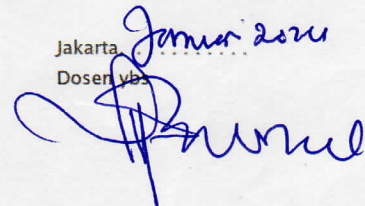 Jakarta, Januari 2024
Dosen ybs